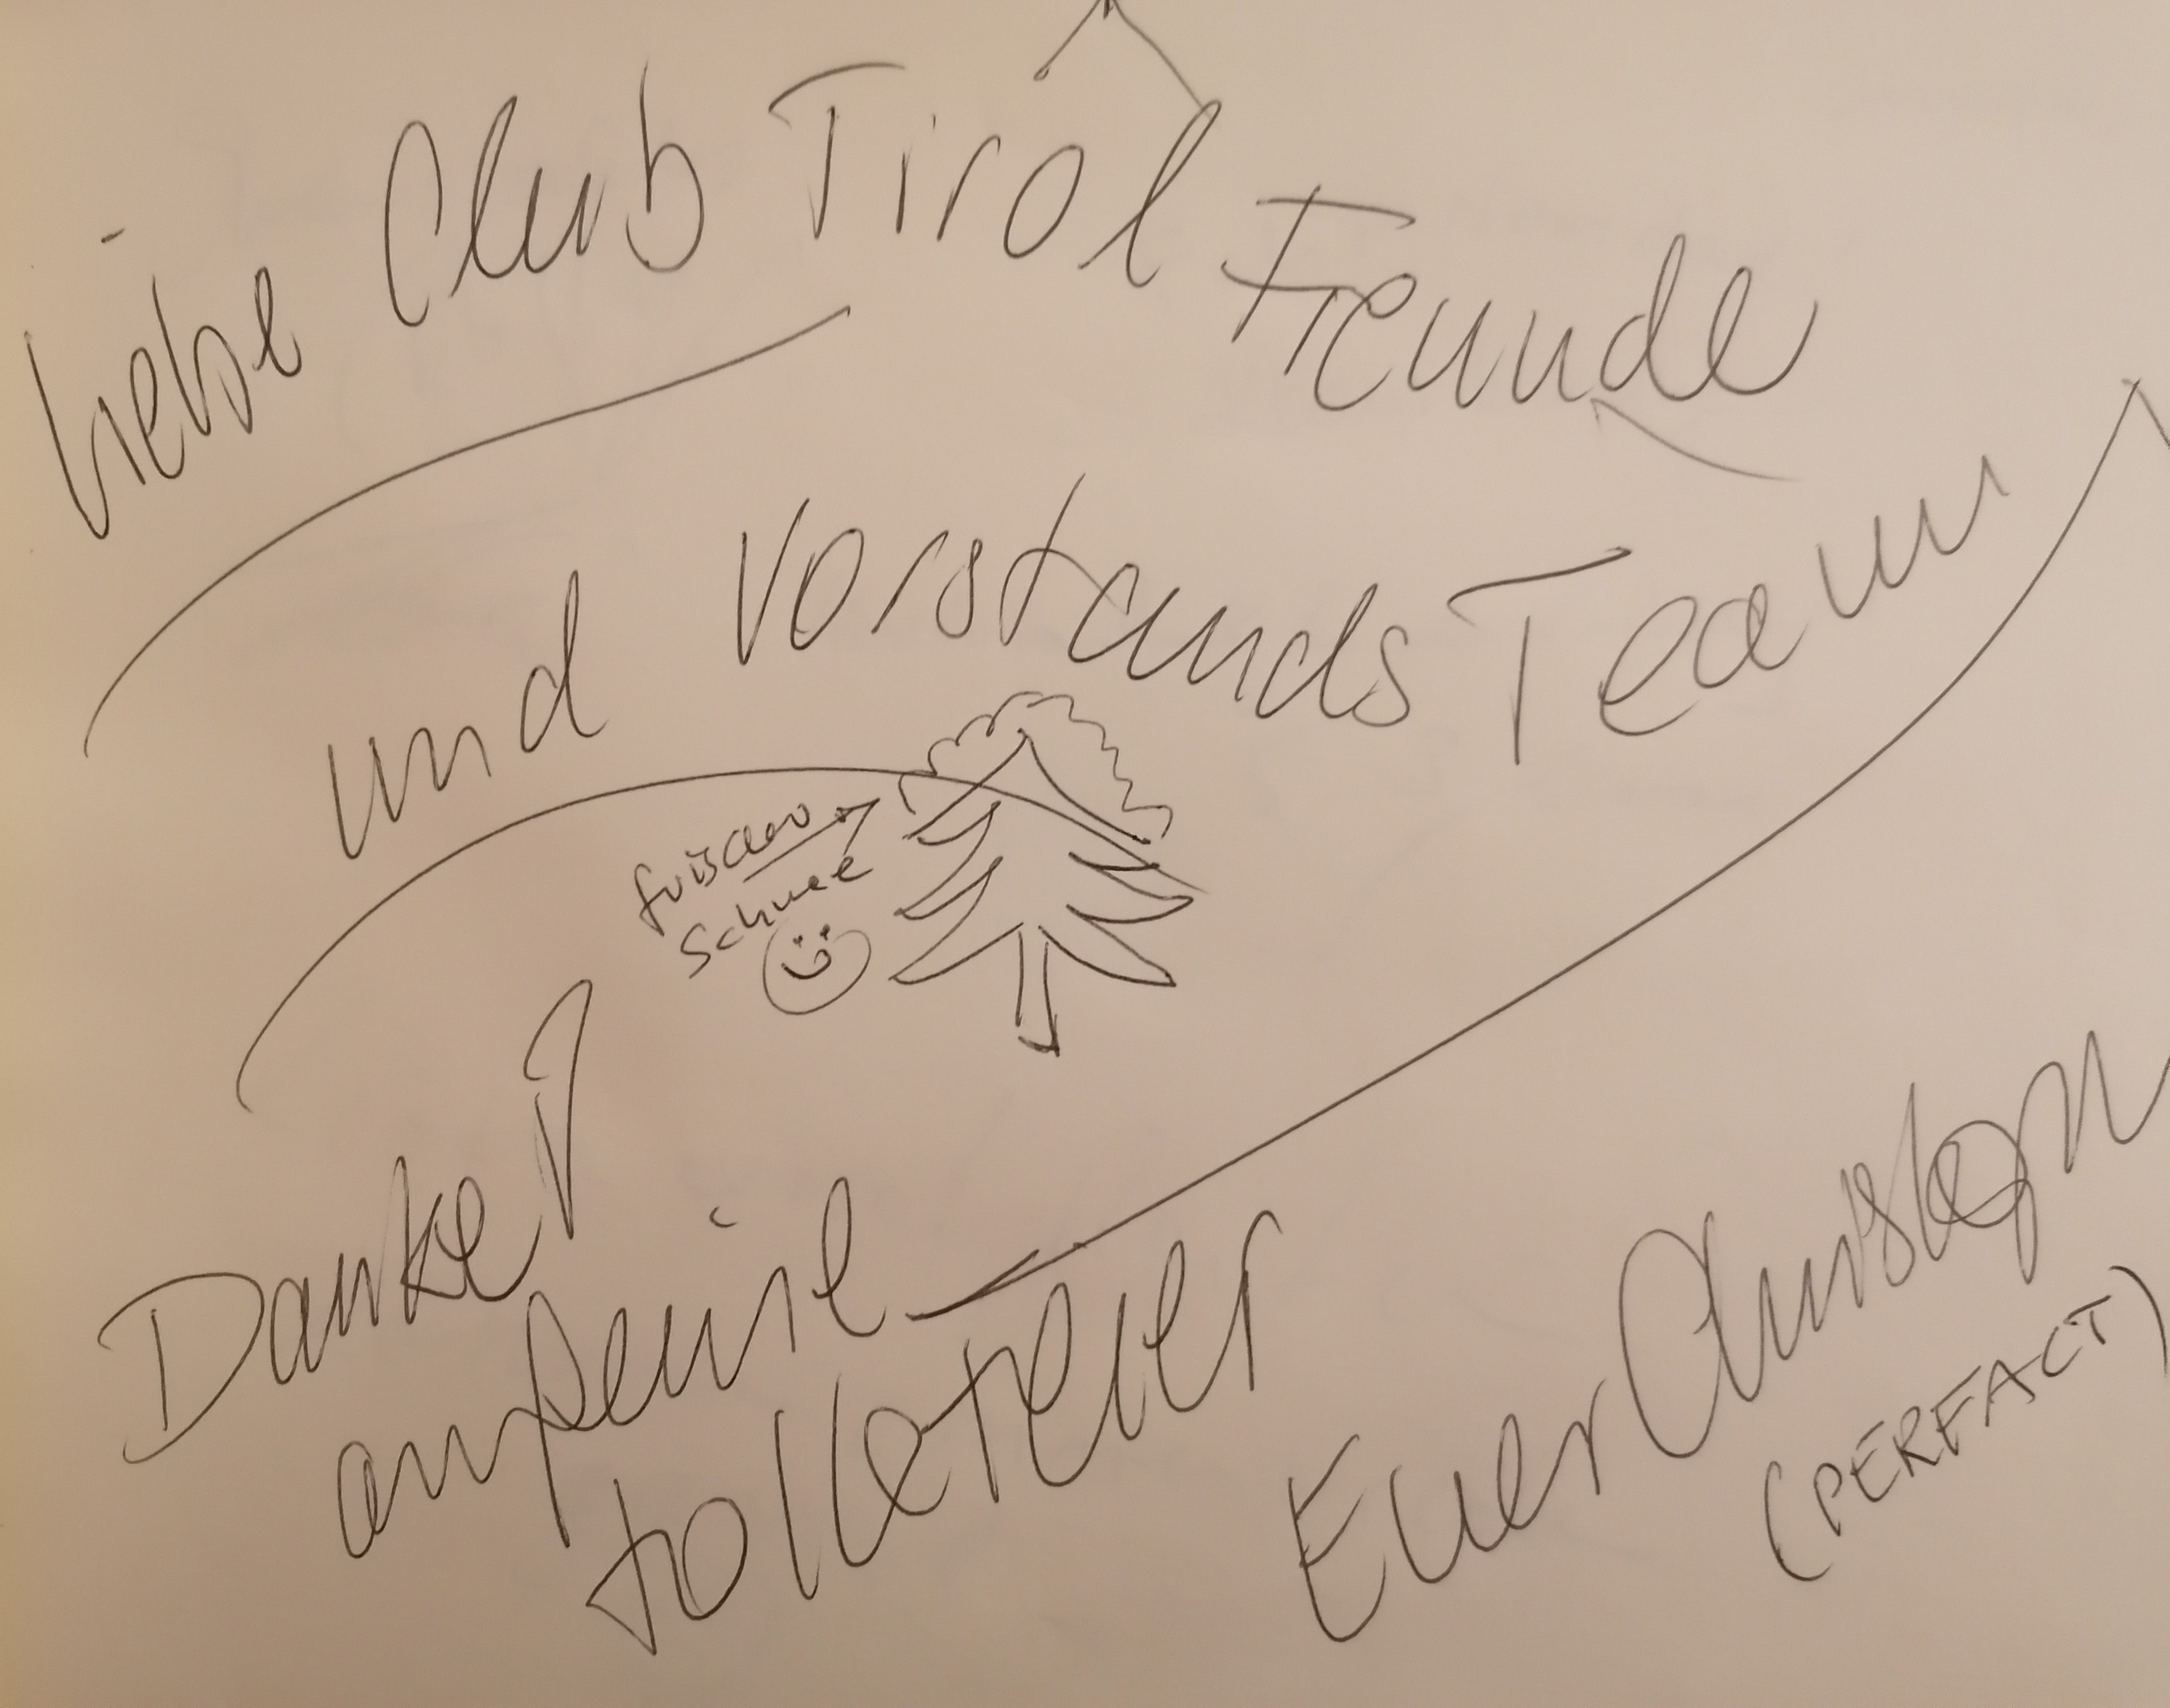 Liebe Club Tirol Freunde
und Vorstands Team
frischer
Schnee
Danke!
eine
tolle Feier
Euer Christoph
(PERFACT)